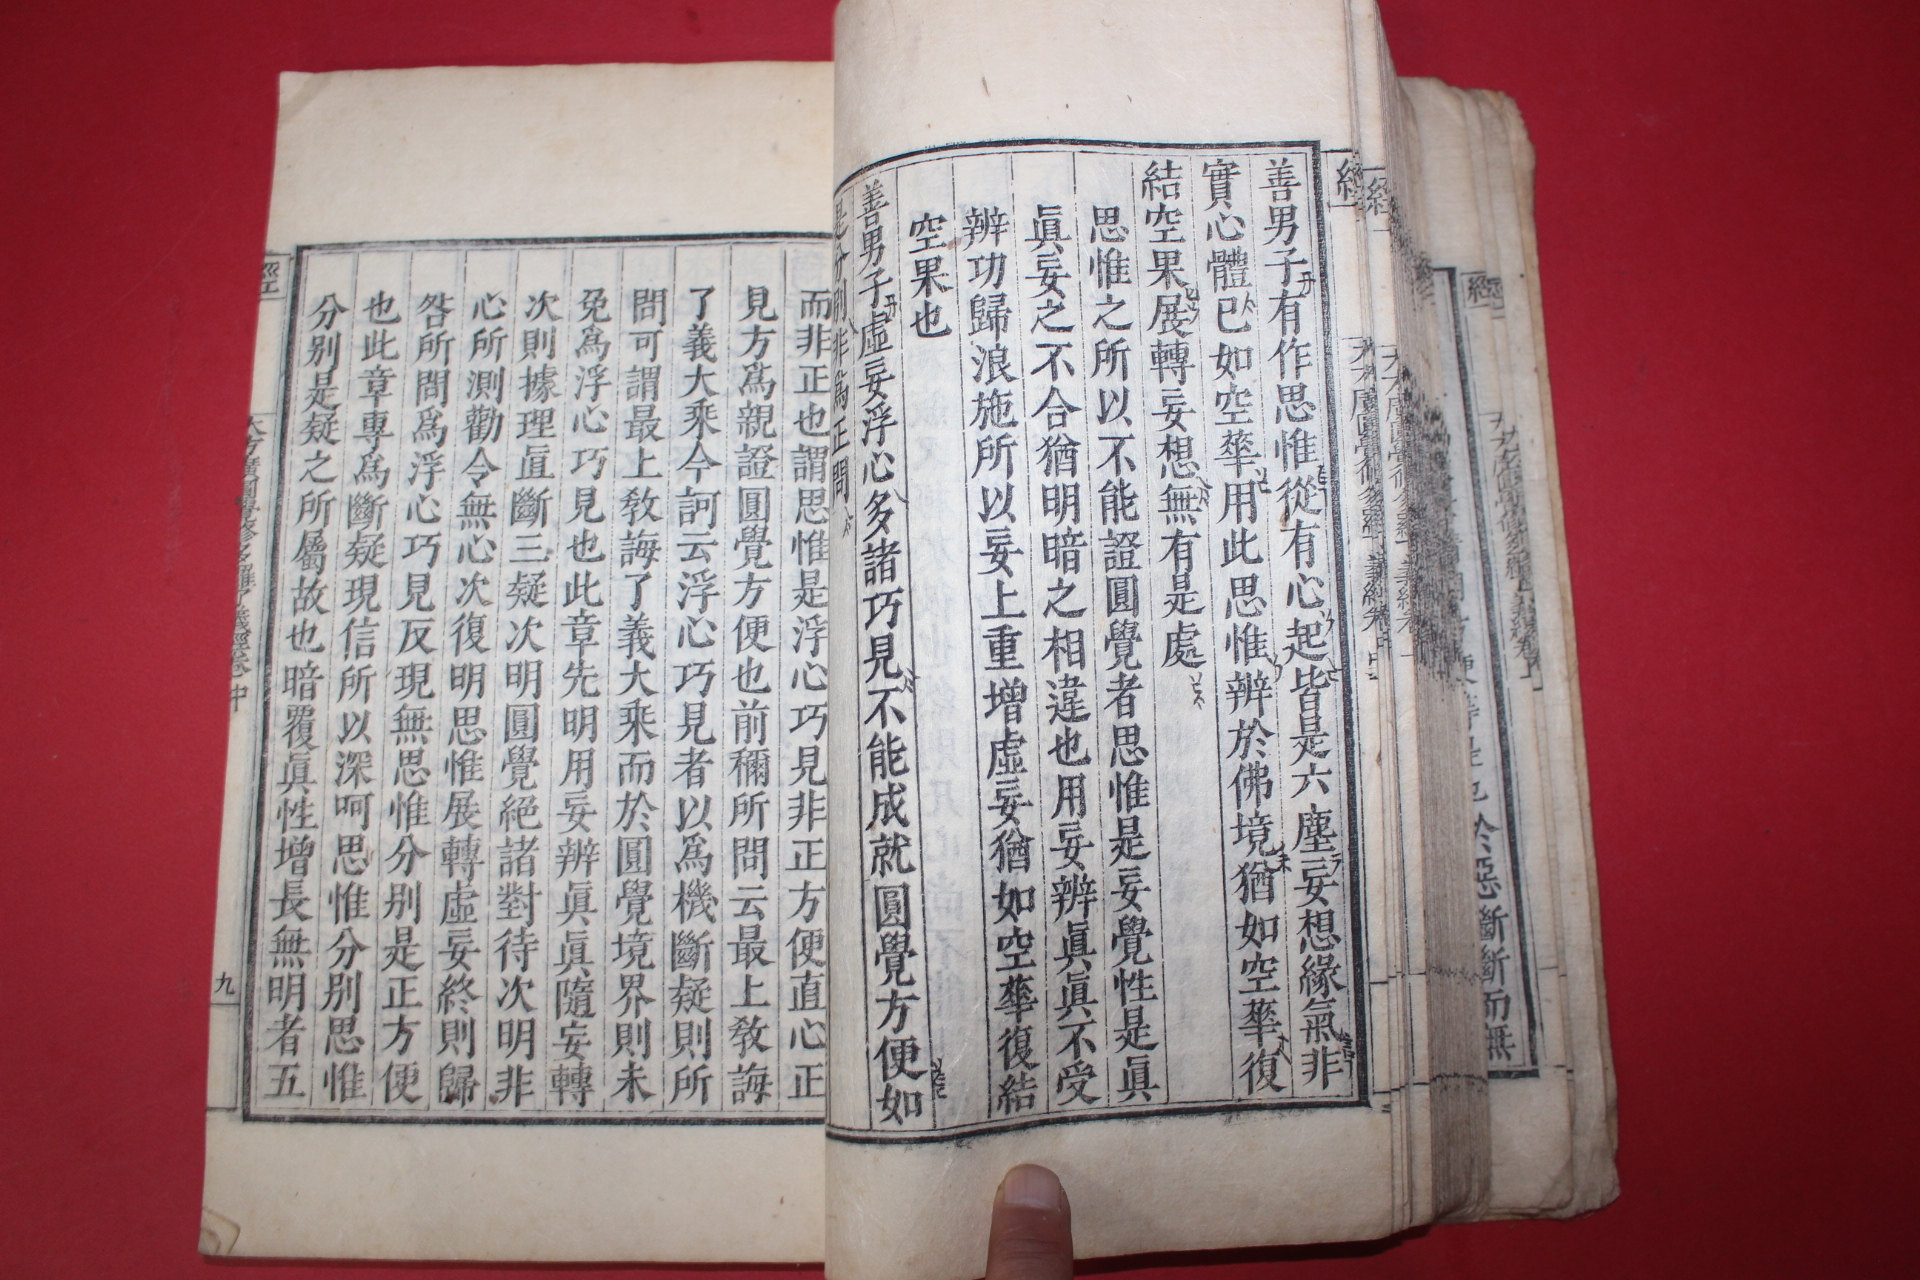 善男子有作思惟從有心起皆是六塵妄想緣氣非
實心體已如空華用此思惟辨於佛境猶如空華復
結空果展轉妄想無有是處
思惟之所以不能證圓覺者思惟是妄覺性是眞
眞妄之不合猶明暗之相違也用妄辨眞眞不受
辨功歸浪施所以妄上重增虛妄猶如空華復結
空果也
善男子虛妄浮心多諸巧見不能成就圓覺方便如
是分別非爲正問
而非正也謂思惟是浮心巧見非正方便直心正
見方爲親證圓覺方便也前稱所問云最上敎誨
了義大乘今訶云浮心巧見者以爲機斷疑則所
問可謂最上敎誨了義大乘而於圓覺境界則未
免爲浮心巧見也此章先明用妄辨眞眞隨妄轉
次則據理直斷三疑次明圓覺絕諸對待次明非
心所測勸令無心次復明思惟展轉虛妄終則歸
咎所問爲浮心巧見反現無思惟分別是正方便
也此章專爲斷疑現信所以深呵思惟分別思惟
分別是疑之所屬故也暗覆眞性增長無明者五
經
大方廣圓覺修多羅了義經卷中
九